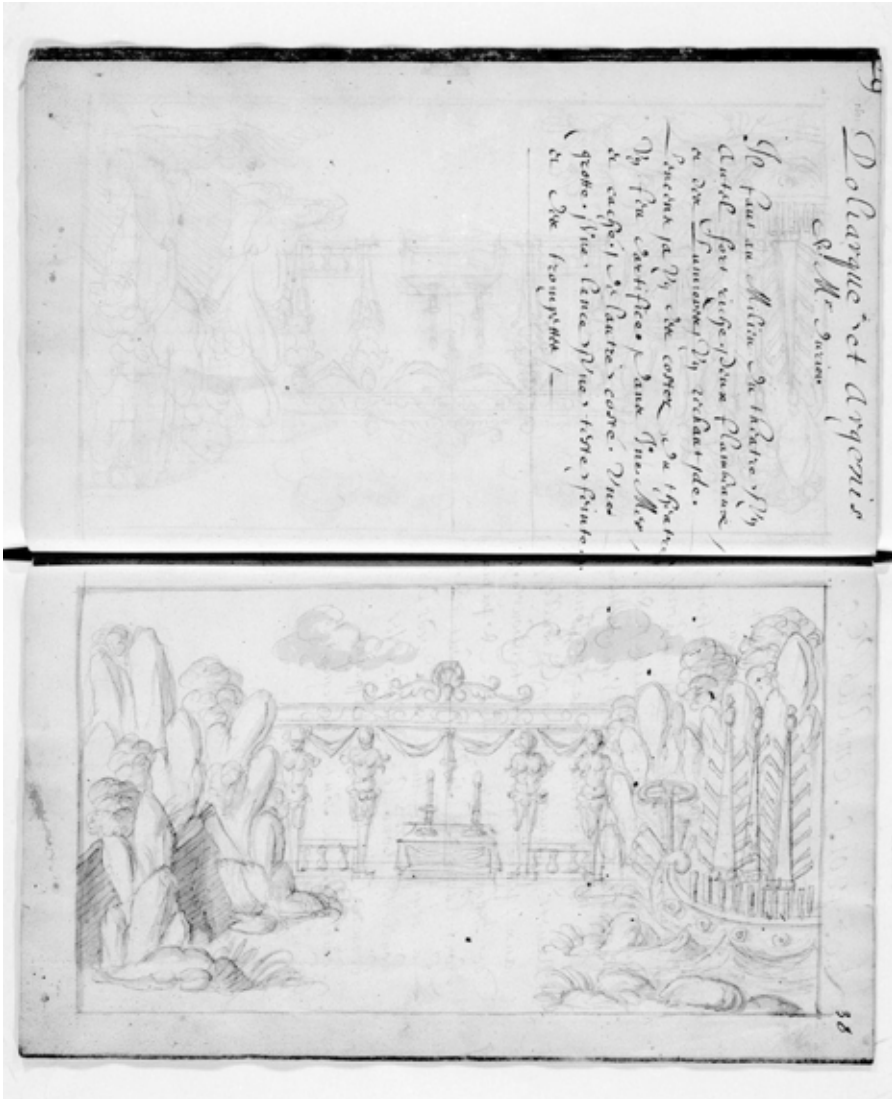 Poliarque et Argenis
de Mr durier
Il faut au Milieu du théatre, Un
Autel fort riche, deux flambeaux,
et des Lumieres, Un rechaut, de
L'encens, a Un des costez du théatre
Un feu d'artifice, dans Une Mer,
et cachés, de l'autre costé. Une
grotte, Une Lance, Une teste feinte.
et des trompettes,
38